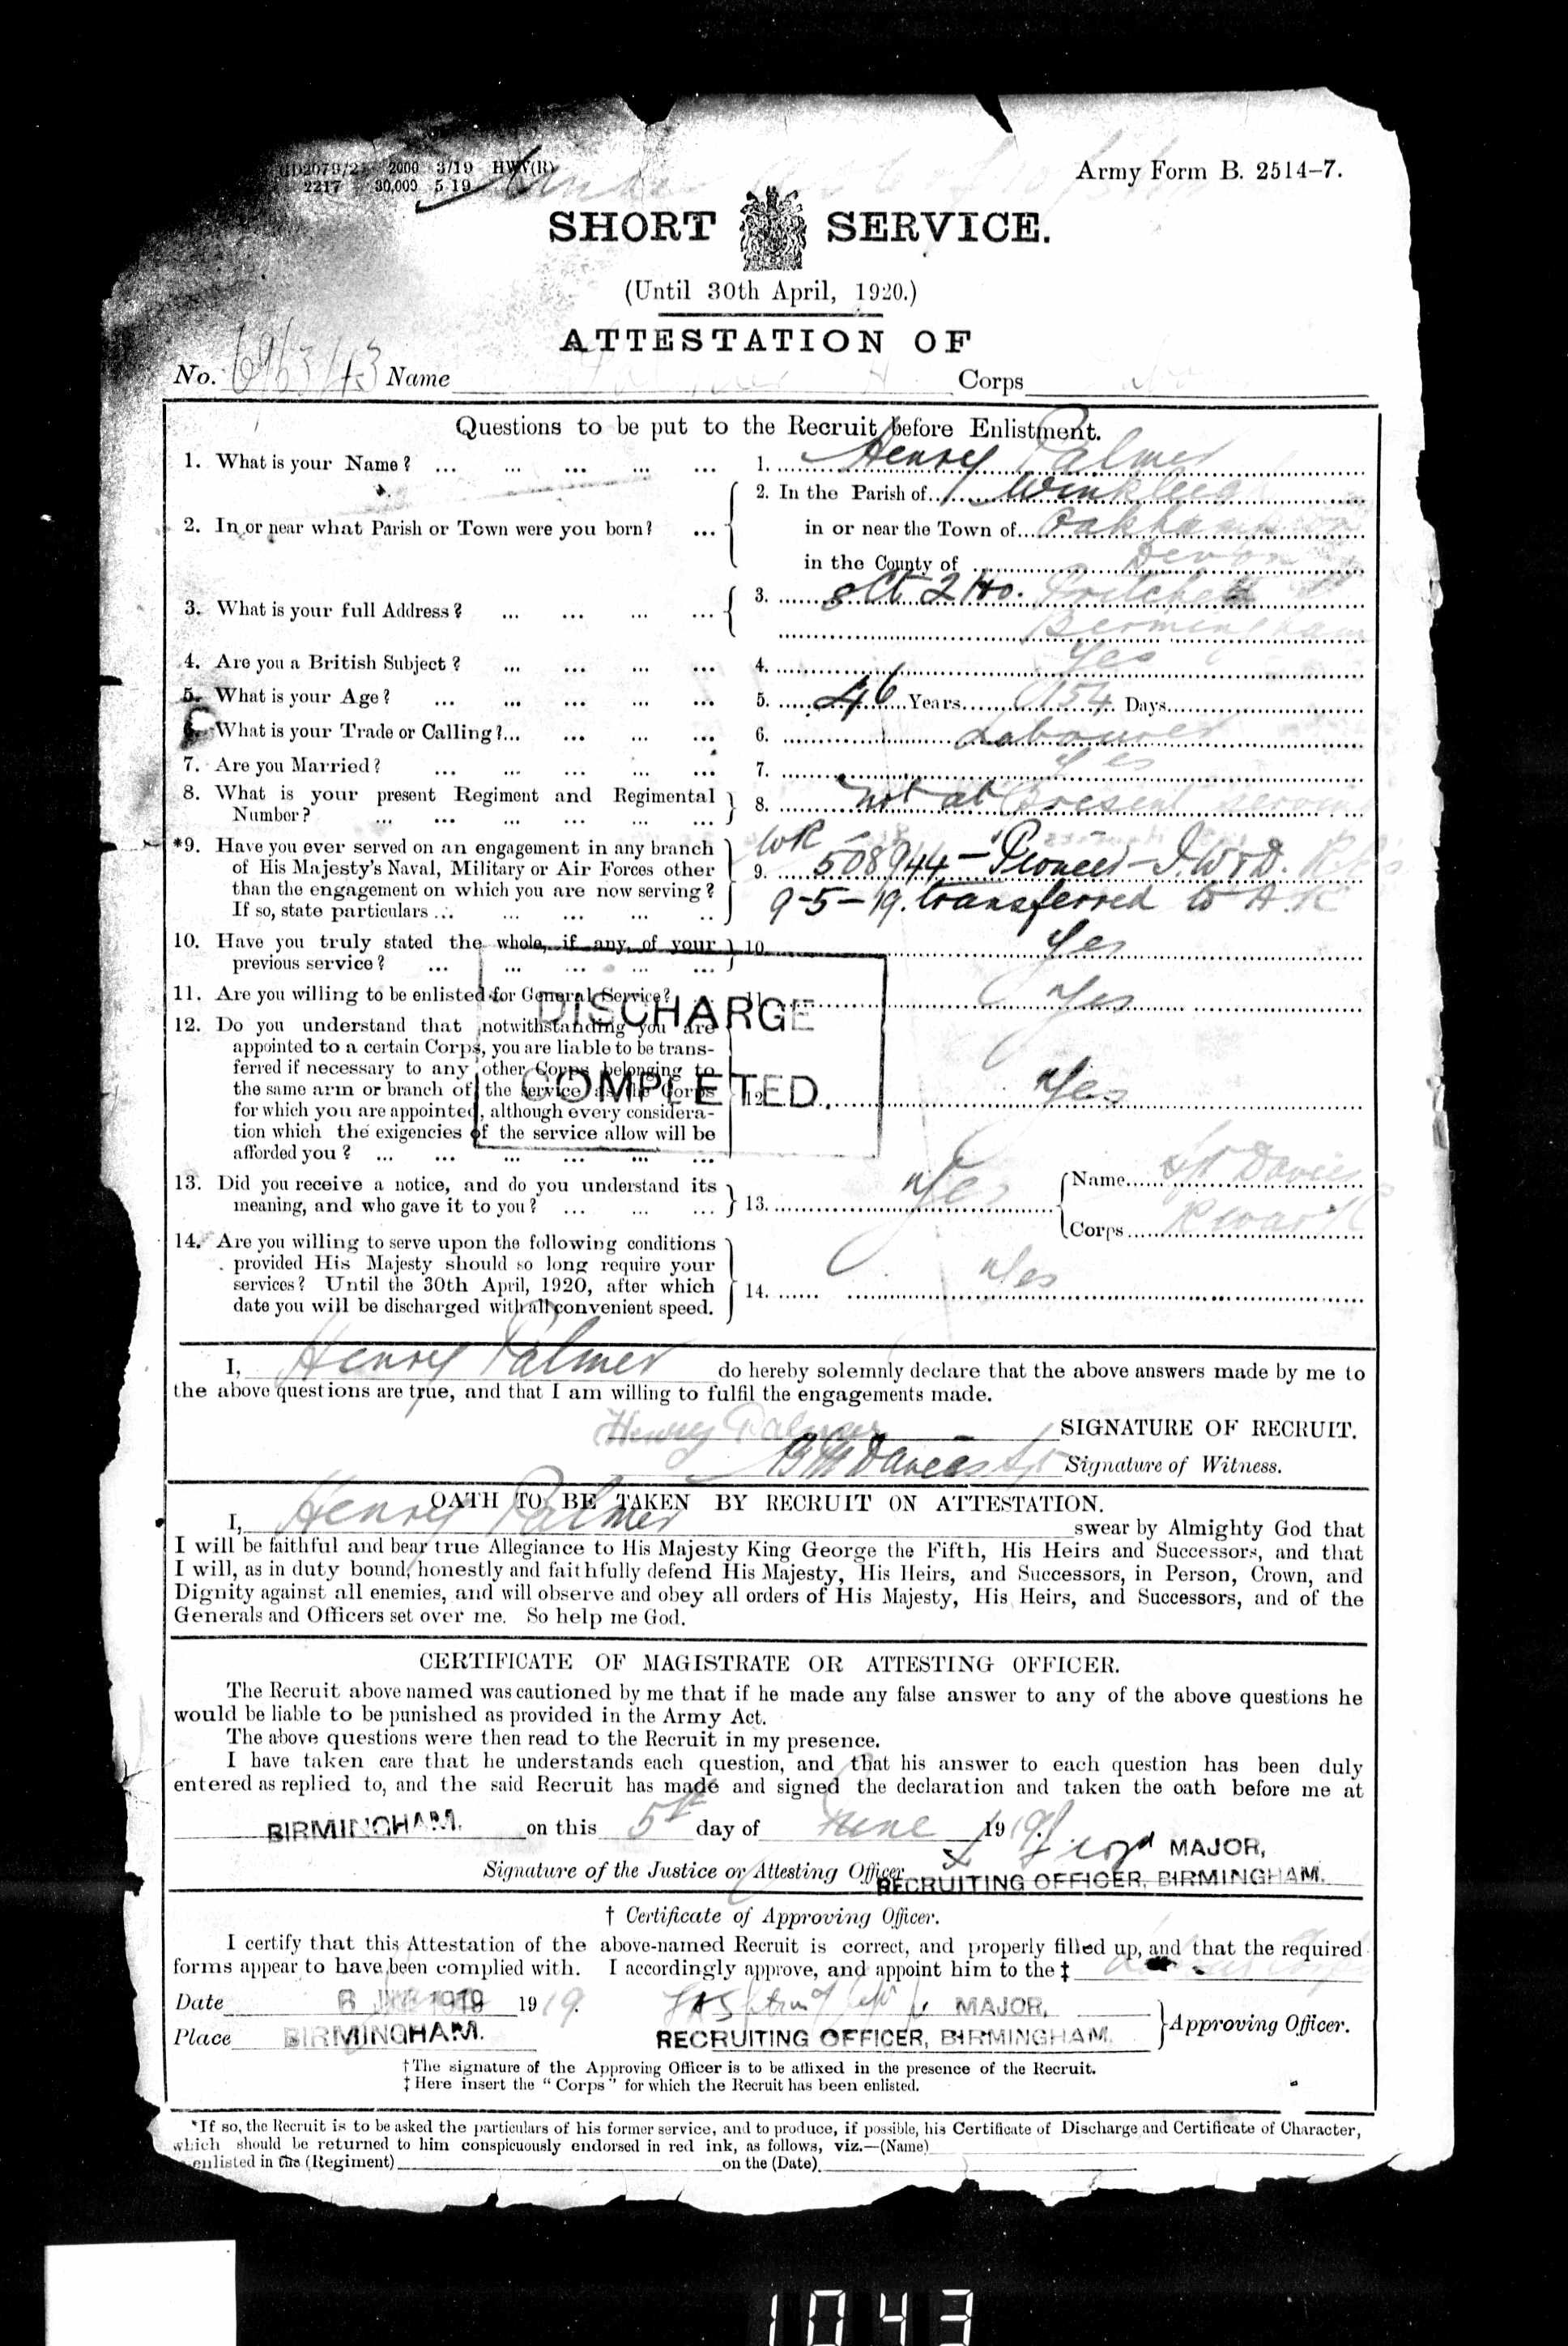 2000 3/19 HWV(R)
2217 30,000 5 19
Army Form B. 2514–7.
SHORT SERVICE.
(Until 30th April, 1920.)
ATTESTATION OF
No. Name Corps
Questions to be put to the Recruit before Enlistment.
1. What is your Name? ... ... ... ... ... 1. Henry Palmer
2. In or near what Parish or Town were you born? ... 2. In the Parish of Winkleig
in or near the Town of Oakhampton
in the County of Devon
3. What is your full Address? ... ... ... ... 3. 8 Ct 2 Ho. Pritchett St
Birmingham
4. Are you a British Subject? ... ... ... ... 4. Yes
5. What is your Age? ... ... ... ... ... 5. 46 Years 154 Days
6. What is your Trade or Calling?... ... ... ... 6. Labourer
7. Are you Married? ... ... ... ... ... 7. Yes
8. What is your present Regiment and Regimental
Number? ... ... ... ... ... ... 8. not at Present serving
*9. Have you ever served on an engagement in any branch WR
of His Majesty's Naval, Military or Air Forces other
than the engagement on which you are now serving? 9. 508944 – Pioneer – I.W&D. R.E's
If so, state particulars ... ... ... ... .. 9-5-19. transferred to A.R
10. Have you truly stated the whole, if any, of your 10. Yes
previous service? ... ... ... ... ... ...
11. Are you willing to be enlisted for General Service? 11. Yes
DISCHARGE
12. Do you understand that notwithstanding you are
appointed to a certain Corps, you are liable to be trans-
ferred if necessary to any other Corps belonging to
COMPLETED.
the same arm or branch of the service as the Corps 12. Yes
for which you are appointed, although every considera-
tion which the exigencies of the service allow will be
afforded you? ... ... ... ... ... ...
13. Did you receive a notice, and do you understand its 13. Yes Name Sgt Davies
meaning, and who gave it to you? ... ... ... Corps R War R
14. Are you willing to serve upon the following conditions
provided His Majesty should so long require your
services? Until the 30th April, 1920, after which 14. Yes
date you will be discharged with all convenient speed.
I, Henry Palmer do hereby solemnly declare that the above answers made by me to
the above questions are true, and that I am willing to fulfil the engagements made.
Henry Palmer SIGNATURE OF RECRUIT.
Davies Sgt Signature of Witness.
OATH TO BE TAKEN BY RECRUIT ON ATTESTATION.
I, Henry Palmer swear by Almighty God that
I will be faithful and bear true Allegiance to His Majesty King George the Fifth, His Heirs and Successors, and that
I will, as in duty bound, honestly and faithfully defend His Majesty, His Heirs, and Successors, in Person, Crown, and
Dignity against all enemies, and will observe and obey all orders of His Majesty, His Heirs, and Successors, and of the
Generals and Officers set over me. So help me God.
CERTIFICATE OF MAGISTRATE OR ATTESTING OFFICER.
The Recruit above named was cautioned by me that if he made any false answer to any of the above questions he
would be liable to be punished as provided in the Army Act.
The above questions were then read to the Recruit in my presence.
I have taken care that he understands each question, and that his answer to each question has been duly
entered as replied to, and the said Recruit has made and signed the declaration and taken the oath before me at
BIRMINGHAM. on this 5th day of June 1919.
MAJOR,
Signature of the Justice or Attesting Officer
RECRUITING OFFICER, BIRMINGHAM.
† Certificate of Approving Officer.
I certify that this Attestation of the above-named Recruit is correct, and properly filled up, and that the required
forms appear to have been complied with. I accordingly approve, and appoint him to the ‡ Labour Corps
Date 6 JUN 1919 1919. MAJOR,
Place BIRMINGHAM. RECRUITING OFFICER, BIRMINGHAM. Approving Officer.
† The signature of the Approving Officer is to be affixed in the presence of the Recruit.
‡ Here insert the "Corps" for which the Recruit has been enlisted.
*If so, the Recruit is to be asked the particulars of his former service, and to produce, if possible, his Certificate of Discharge and Certificate of Character,
which should be returned to him conspicuously endorsed in red ink, as follows, viz.—(Name)
enlisted in the (Regiment) on the (Date)
1043